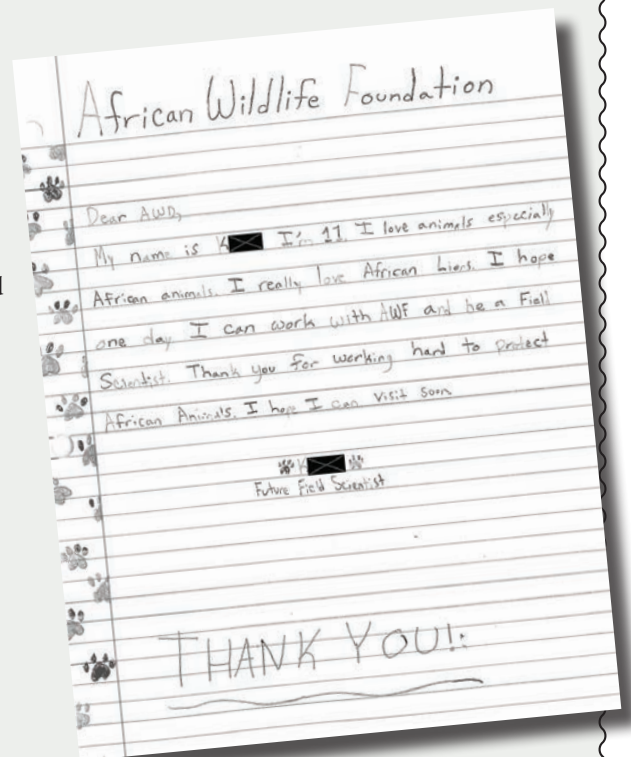 African Wildlife Foundation
Dear AWD,
My name is K I'm 11. I love animals especially
African animals. I really love African Lions. I hope
one day I can work with AWF and be a Fiell
Scientist. Thank you for working hard to protect
African Animals. I hope I can visit soon
K
Future Field Scientist
THANK YOU!: